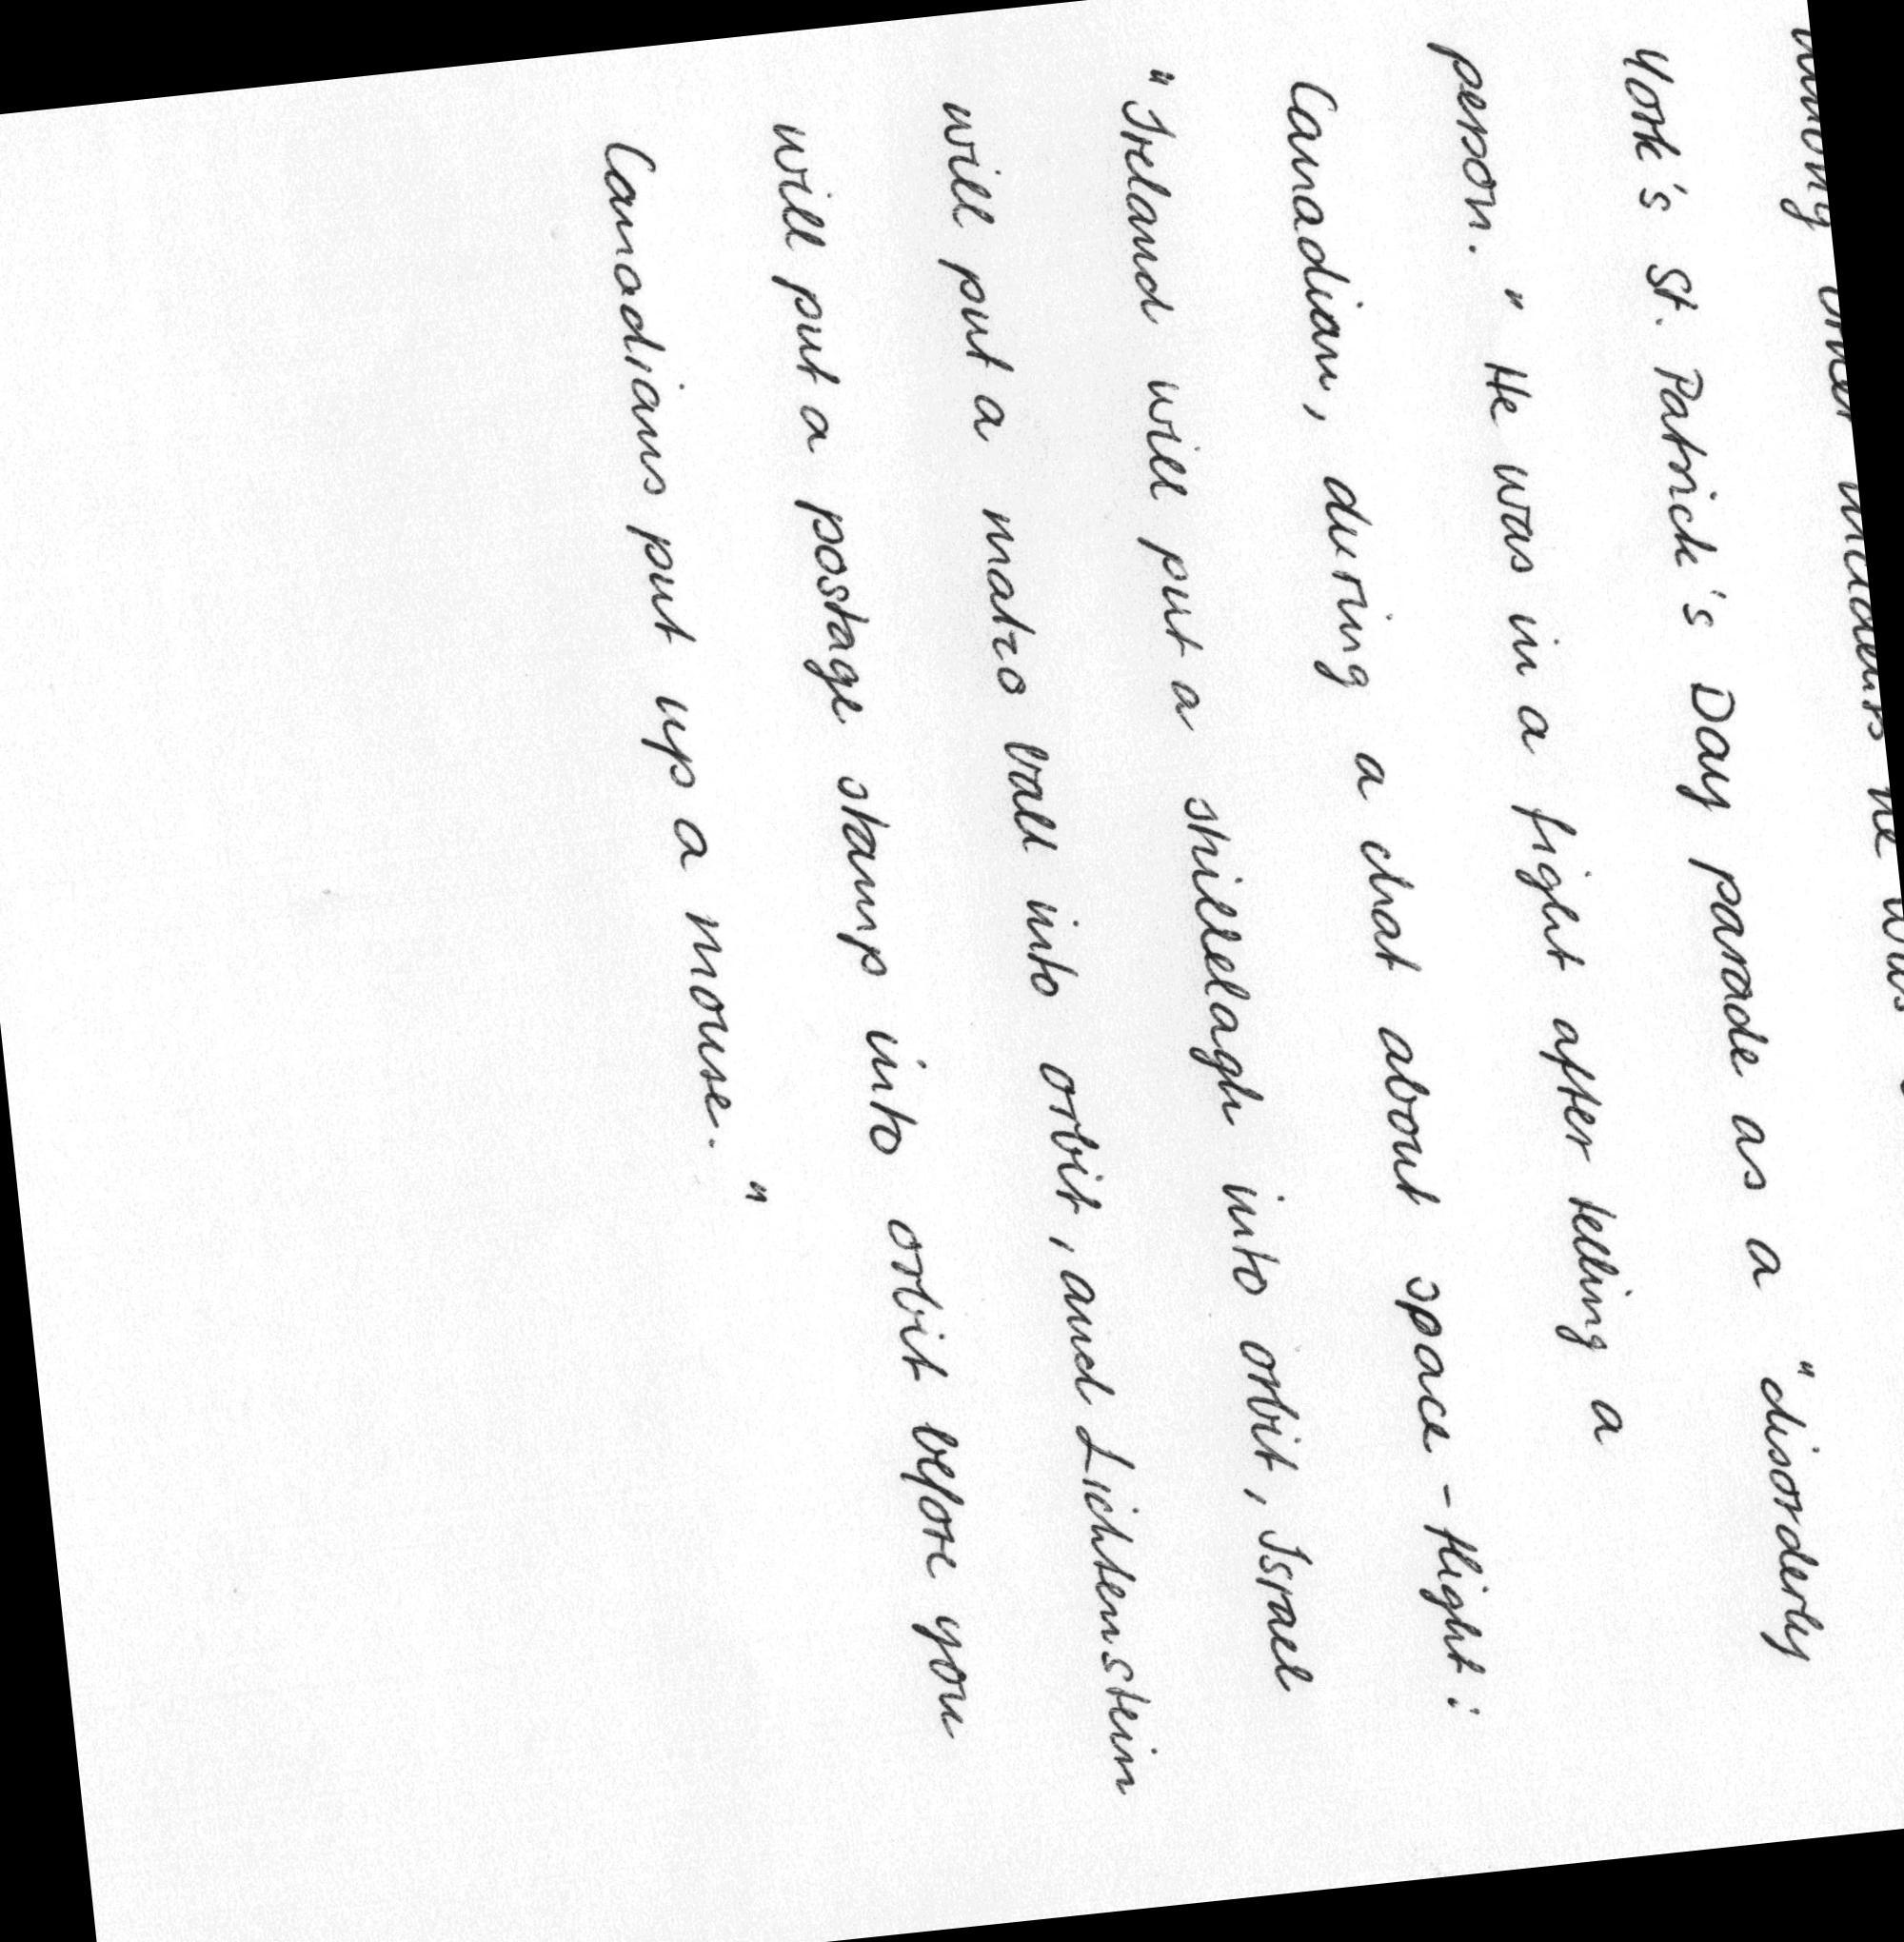 among other incidents he was
York's St. Patrick's Day parade as a "disorderly
person." He was in a fight after telling a
Canadian, during a chat about space-flight:
"Ireland will put a shillelagh into orbit, Israel
will put a matzo ball into orbit, and Lichtenstein
will put a postage stamp into orbit before you
Canadians put up a mouse."